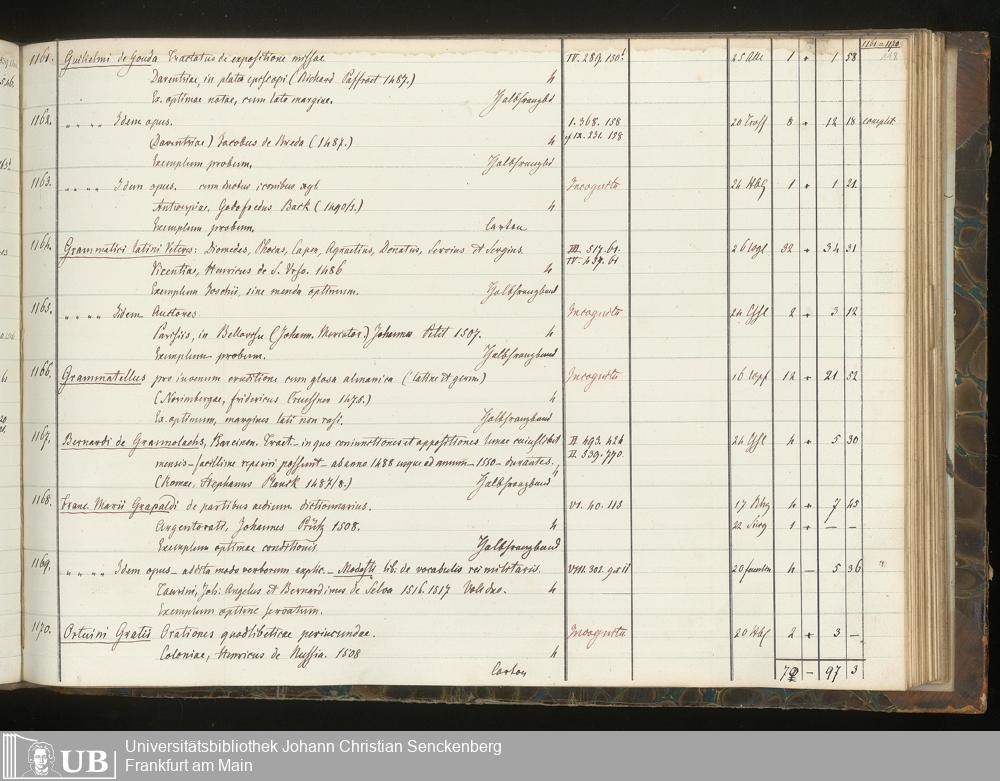 1161-1170.
1161. Guilielmi de Gouda Tractatus de expositione missae IV. 289. 150. 25 Alle 1 1 58
Daventriae, in platea episcopi (Richard Paffroet 1487.) 4
Ex. optimae notae, cum lato margine. Halbfranzbd
1162. " " " " Idem opus. 1. 368. 158 20 8 12 18 complet
(Daventriae) Jacobus de Breda (1487.) 4 IX. 231. 198
Exemplum probum. Halbfranzbd
1163. " " " " Idem opus. cum duobus iconibus xyl Incognito 24 1 1 21.
Antwerpiae, Godofredus Back (1490/3.) 4
Exemplum probum. Carton
1164. Grammatici latini Veteres: Diomedes, Phocas, Caper, Agraetius, Donatus, Servius et Sergius. III. 517. 61. 26 32 34 31
Vicentiae, Henricus de S. Urso. 1486 4 IV. 439. 61
Exemplum, sine menda optimum. Halbfranzband
1165. " " " " Idem Auctores Incognito 24 2 3 12
Parisiis, in (Johann. Mercator) Johannes Petit 1507. 4
Exemplum probum. Halbfranzband
1166. Grammatellus pro iuvenum eruditione cum glosa almanica (latine et germ) Incognito 16 12 21 52
(Norimbergae, fridericus Creussner 1475.) 4
Ex. optimum, margines lati non rasi. Halbfranzband
1167. Bernardi de Granolachs, Barcinon. Tract. in quo coniunctiones et oppositiones lunae cuiuslibet II. 493. 424 24 4 5 30
mensis facillime reperiri possunt ab anno 1488 usque ad annum 1550 durantes. II. 539. 770.
(Romae, Stephanus Planck 1487/8.) 4 Halbfranzband
1168. Franc. Marii Grapaldi de partibus aedium dictionarius. VI. 40. 113 17 4 7 45
Argentorati, Johannes Prütz 1508. 4 22 1 — —
Exemplum optimae conditionis. Halbfranzband
1169. " " " " Idem opus - addita modo verborum explic. - Modesti lib. de vocabulis rei militaris. VIII. 302. 20 4 — 5 36
Taurini, Joh: Angelus et Bernardinus de Selva 1516. 1517 Vol: duo. 4
Exemplum optime servatum.
1170. Ortuini Gratii Orationes quodlibeticae periucundae. Incognito 20 2 3 —
Coloniae, Henricus de Nussia. 1508 4
Carton 72 — 97 3
UB Universitätsbibliothek Johann Christian Senckenberg
Frankfurt am Main